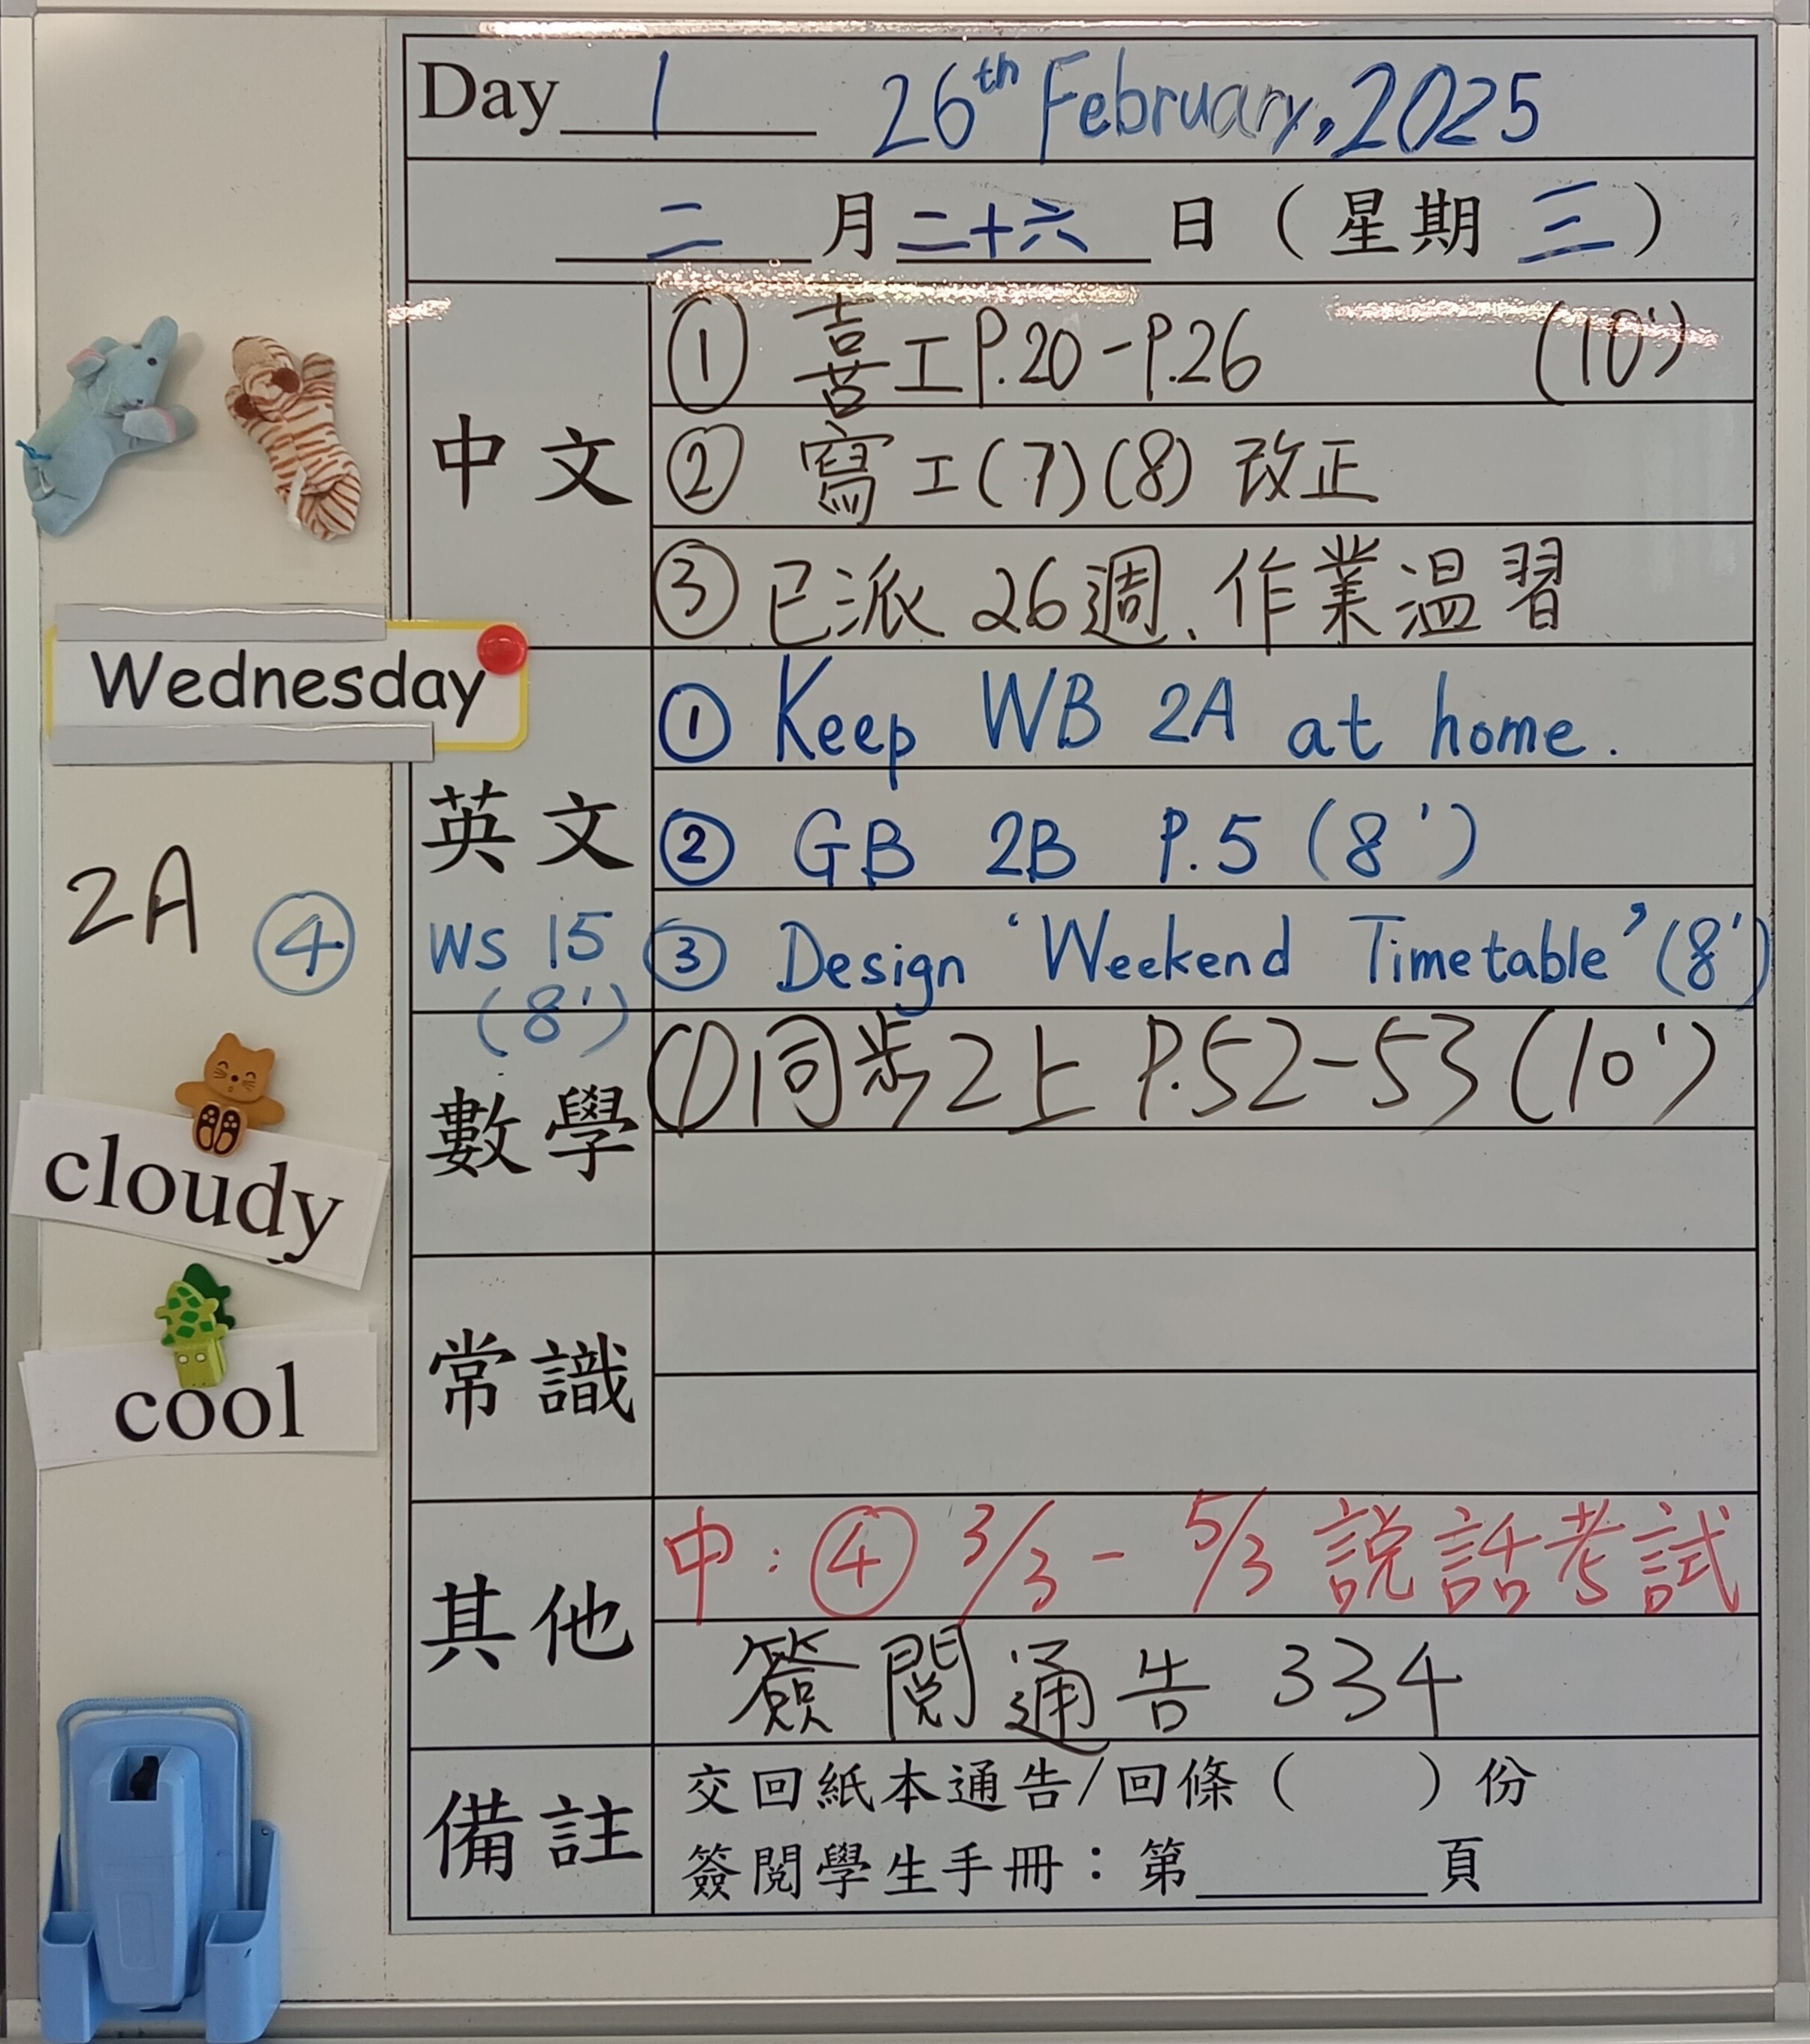 Day 1 26th February, 2025
二 月 二十六 日 ( 星期 三 )
中文
① 喜工P.20-P.26 (10')
② 寫工(7)(8) 改正
③ 已派 26週、作業温習
Wednesday
英文
① Keep WB 2A at home.
② GB 2B P.5 (8')
③ Design ‘Weekend Timetable’ (8')
2A ④ WS 15
(8')
數學
① 同步2上 P.52-53 (10')
cloudy
常識
cool
其他
中: ④ 3/3 - 5/3 説話考試
簽閱通告 334
備註
交回紙本通告/回條 ( ) 份
簽閱學生手冊：第 頁